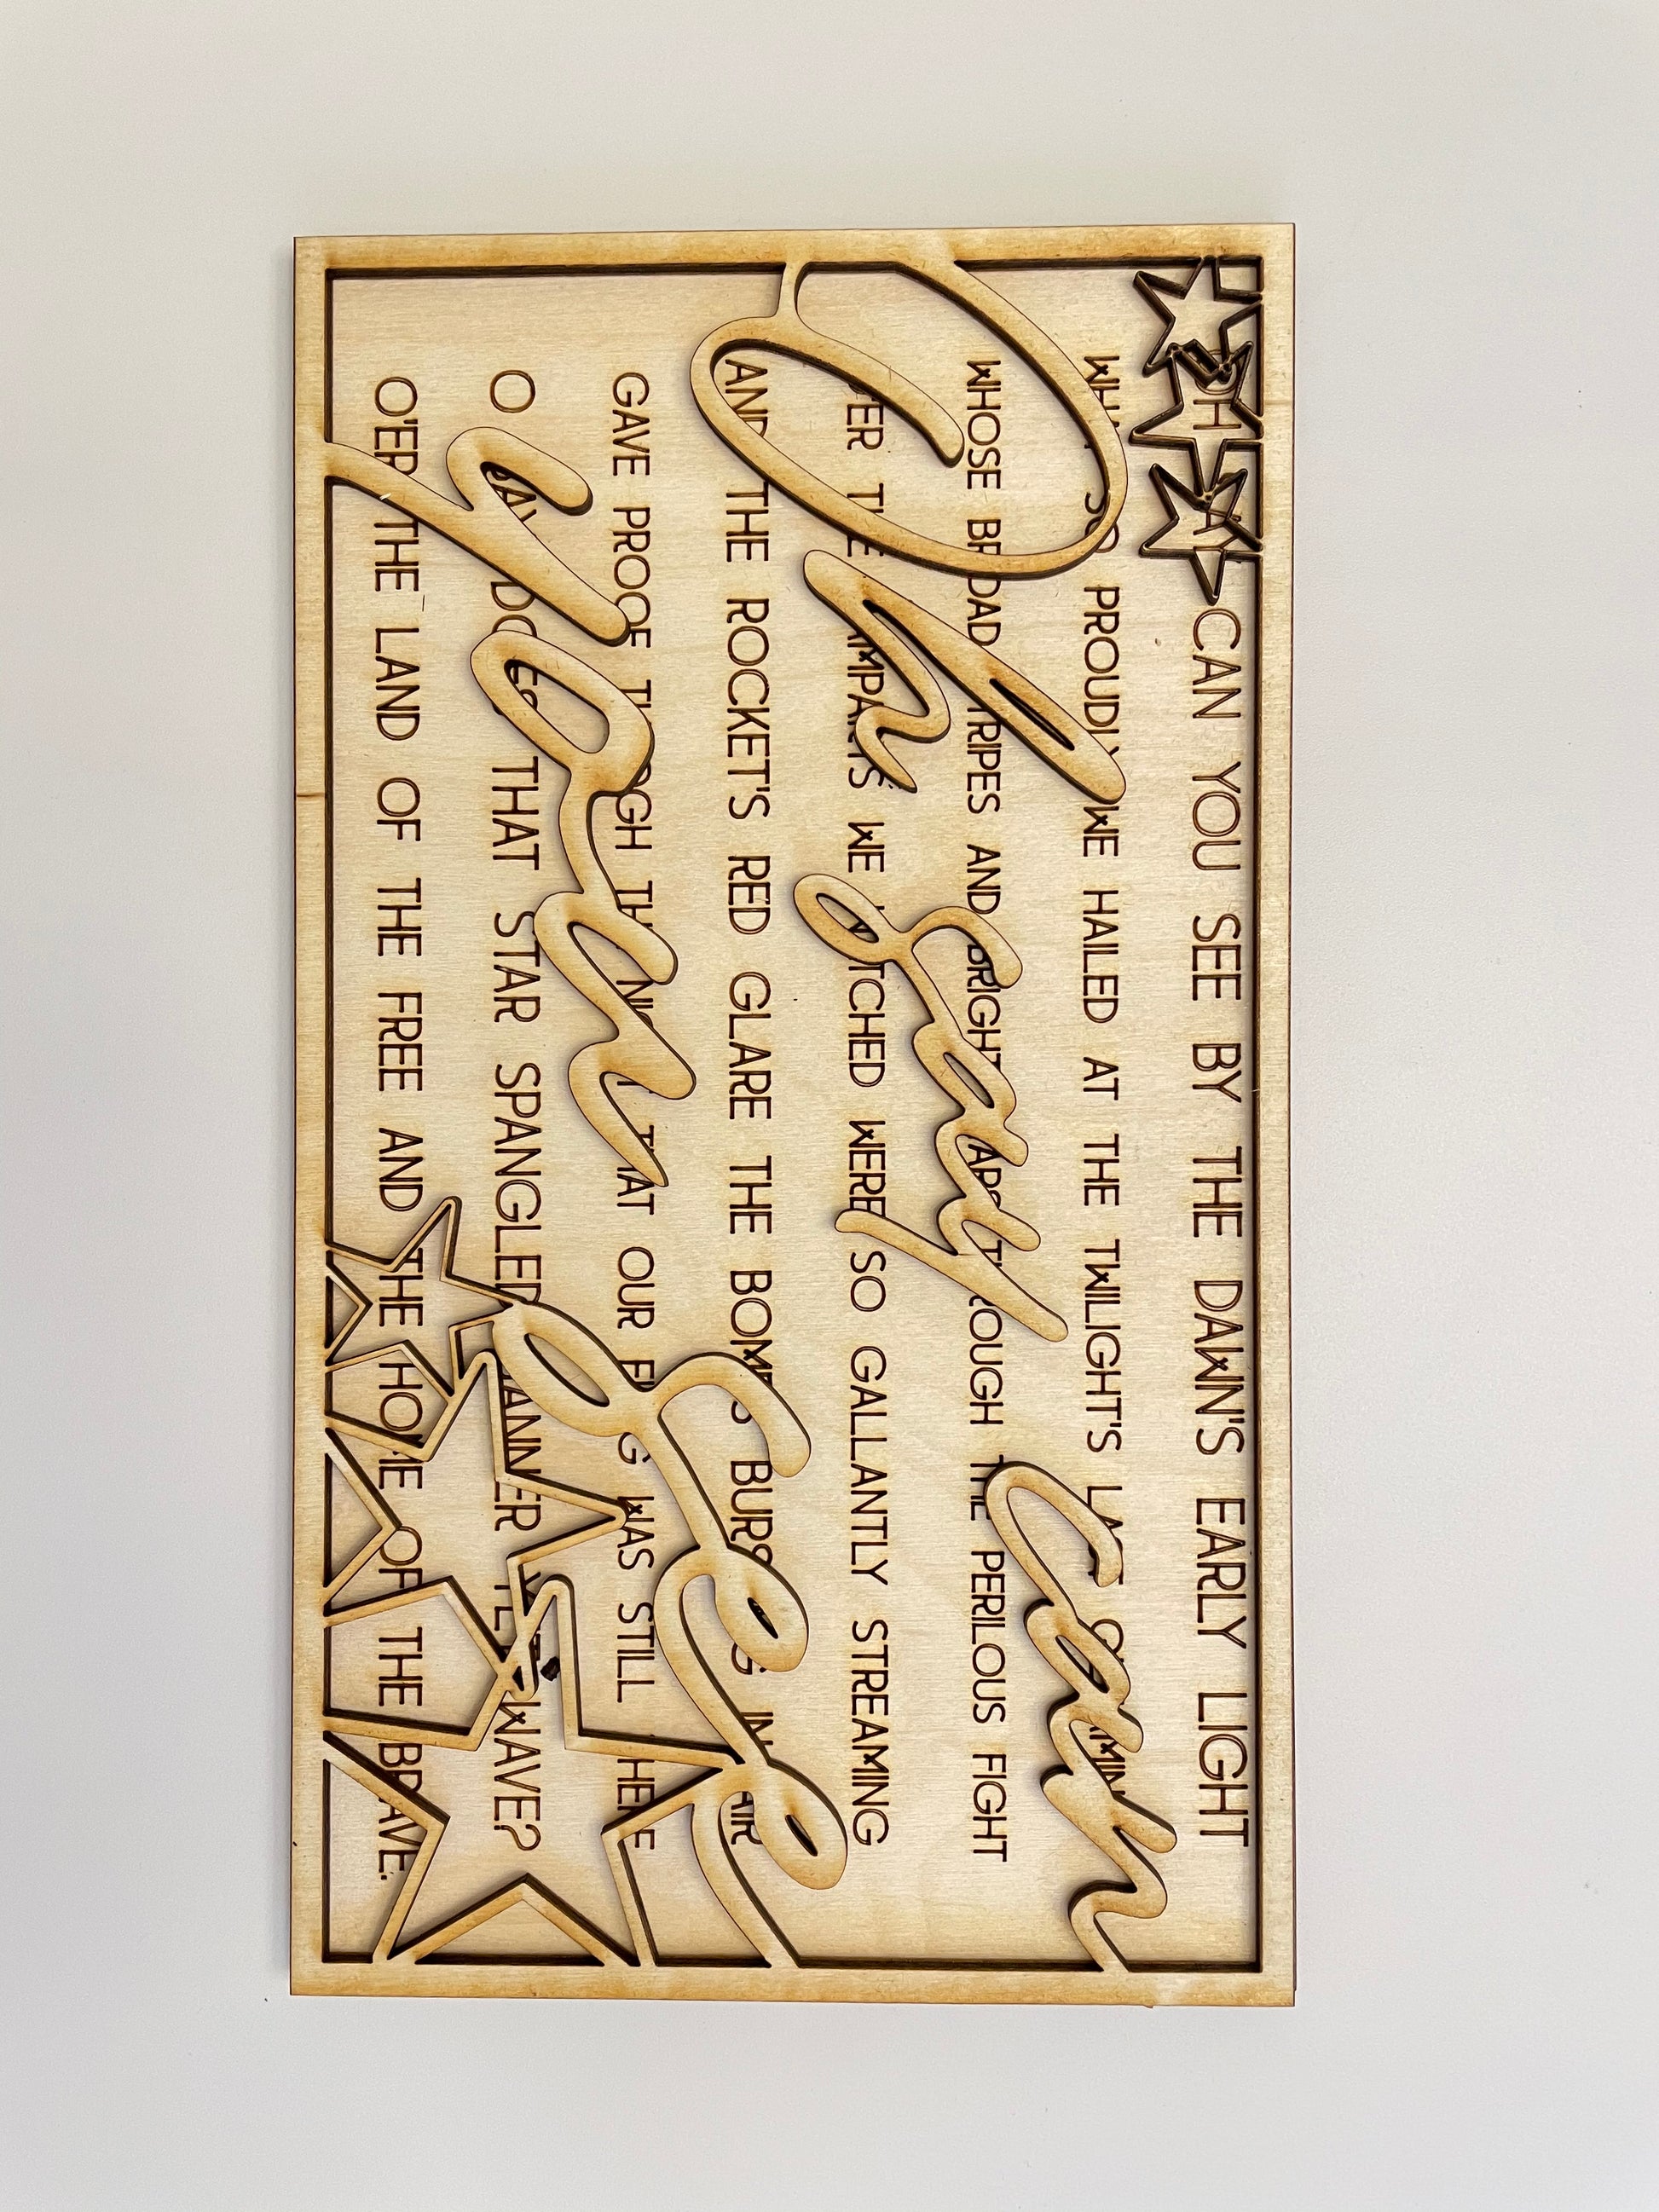 Oh say Can
you See
OH SAY CAN YOU SEE BY THE DAWN'S EARLY LIGHT
WHAT SO PROUDLY WE HAILED AT THE TWILIGHT'S LAST GLEAMING
WHOSE BROAD STRIPES AND BRIGHT STARS THROUGH THE PERILOUS FIGHT
O'ER THE RAMPARTS WE WATCHED WERE SO GALLANTLY STREAMING
AND THE ROCKET'S RED GLARE THE BOMBS BURSTING IN AIR
GAVE PROOF THROUGH THE NIGHT THAT OUR FLAG WAS STILL THERE
O SAY DOES THAT STAR SPANGLED BANNER YET WAVE?
O'ER THE LAND OF THE FREE AND THE HOME OF THE BRAVE.